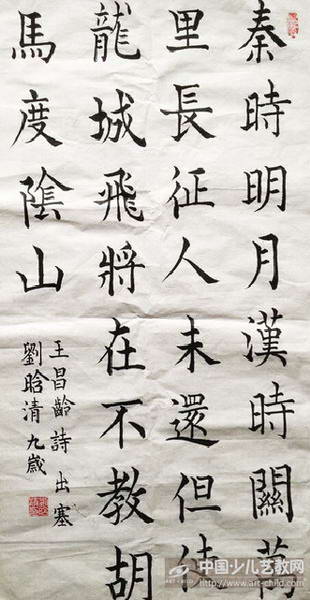 秦時明月漢時關萬
里長征人未還但使
龍城飛將在不教胡
馬度陰山
王昌齡詩出塞
劉晗清九歲
中国少儿艺教网
http://www.art-child.com